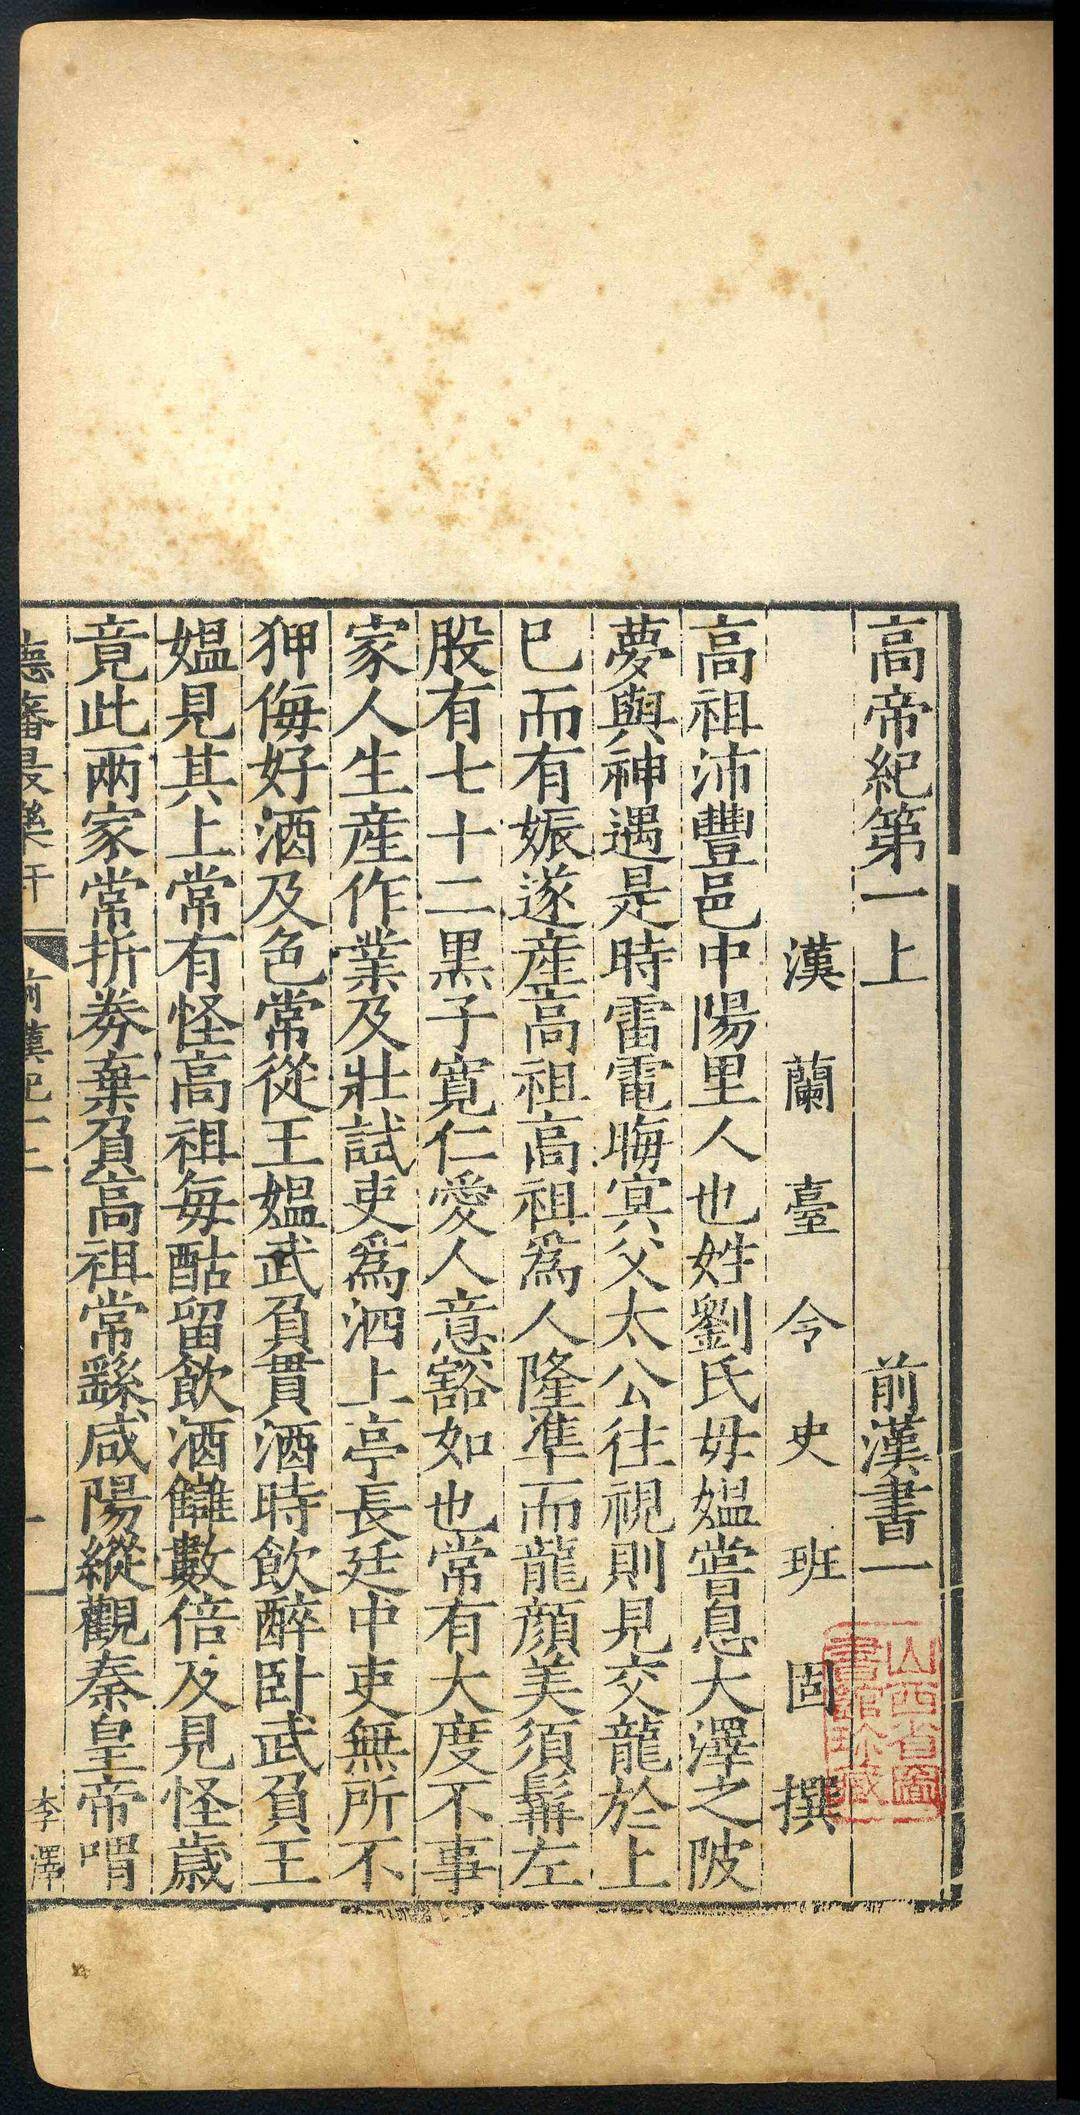 高帝紀第一上 前漢書一
漢 蘭 臺 令 史 班 固 撰
高祖沛豐邑中陽里人也姓劉氏毋媼嘗息大澤之陂
夢與神遇是時雷電晦冥父太公往視則見交龍於上
已而有娠遂產高祖高祖爲人隆準而龍顔美須髯左
股有七十二黑子寬仁愛人意豁如也常有大度不事
家人生產作業及壯試吏爲泗上亭長廷中吏無所不
狎侮好酒及色常從王媼武負貰酒時飲醉臥武負王
媼見其上常有怪高祖每酤留飲酒讎數倍及見怪歲
竟此兩家常折券棄負高祖常繇咸陽縱觀秦皇帝喟
德藩最樂軒 前漢紀一上 一 李澤
山西省圖
書館珍藏